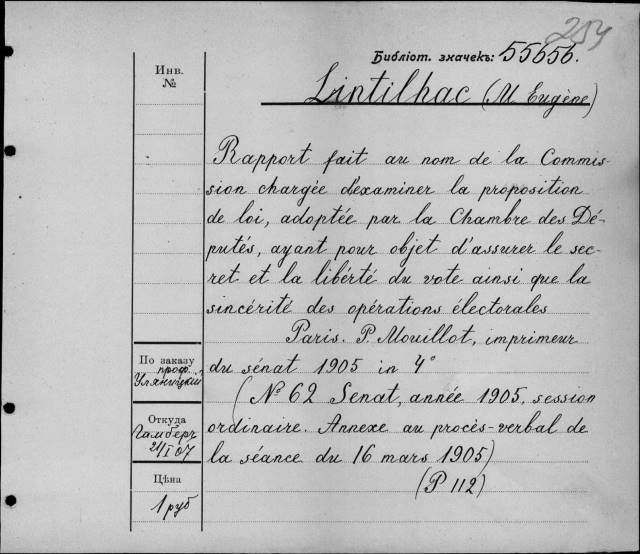 254
Библіот. значекъ: 55656.
Lintilhac (M Eugène)
Инв.
№
Rapport fait au nom de la Commis-
sion chargée d'examiner la proposition
de loi, adoptée par la Chambre des Dé-
putés, ayant pour objet d'assurer le sec-
ret et la libérté du vote ainsi que la
sincérité des opérations électorales
Paris. P. Mouillot, imprimeur
du sénat 1905 in 4°
(№ 62 Senat, année 1905, session
ordinaire. Annexe au procès-verbal de
la séance du 16 mars 1905)
(P 112)
По заказу
проф.
Уляницкій
Откуда
Гамберъ
21/I 07
Цѣна
1 руб